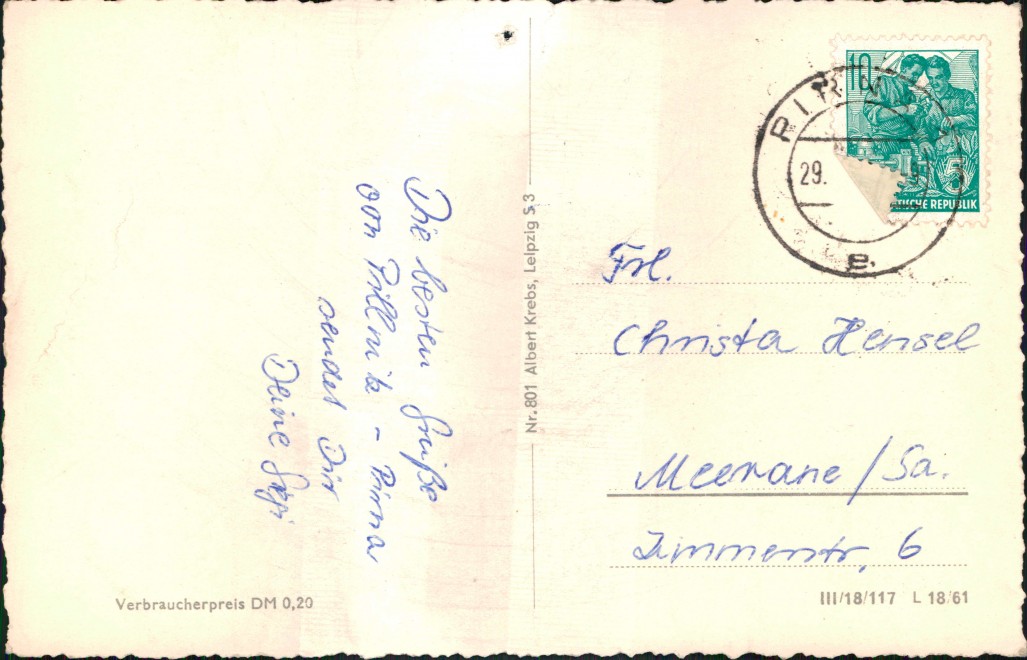 Die besten Grüße
von Pillnitz - Pirna
sendet Dir
Deine
Nr. 801 Albert Krebs, Leipzig S 3
10
5
TISCHE REPUBLIK
PIRNA
29.
e
Frl.
Christa Hensel
Meerane / Sa.
6
Verbraucherpreis DM 0,20
III/18/117 L 18/61